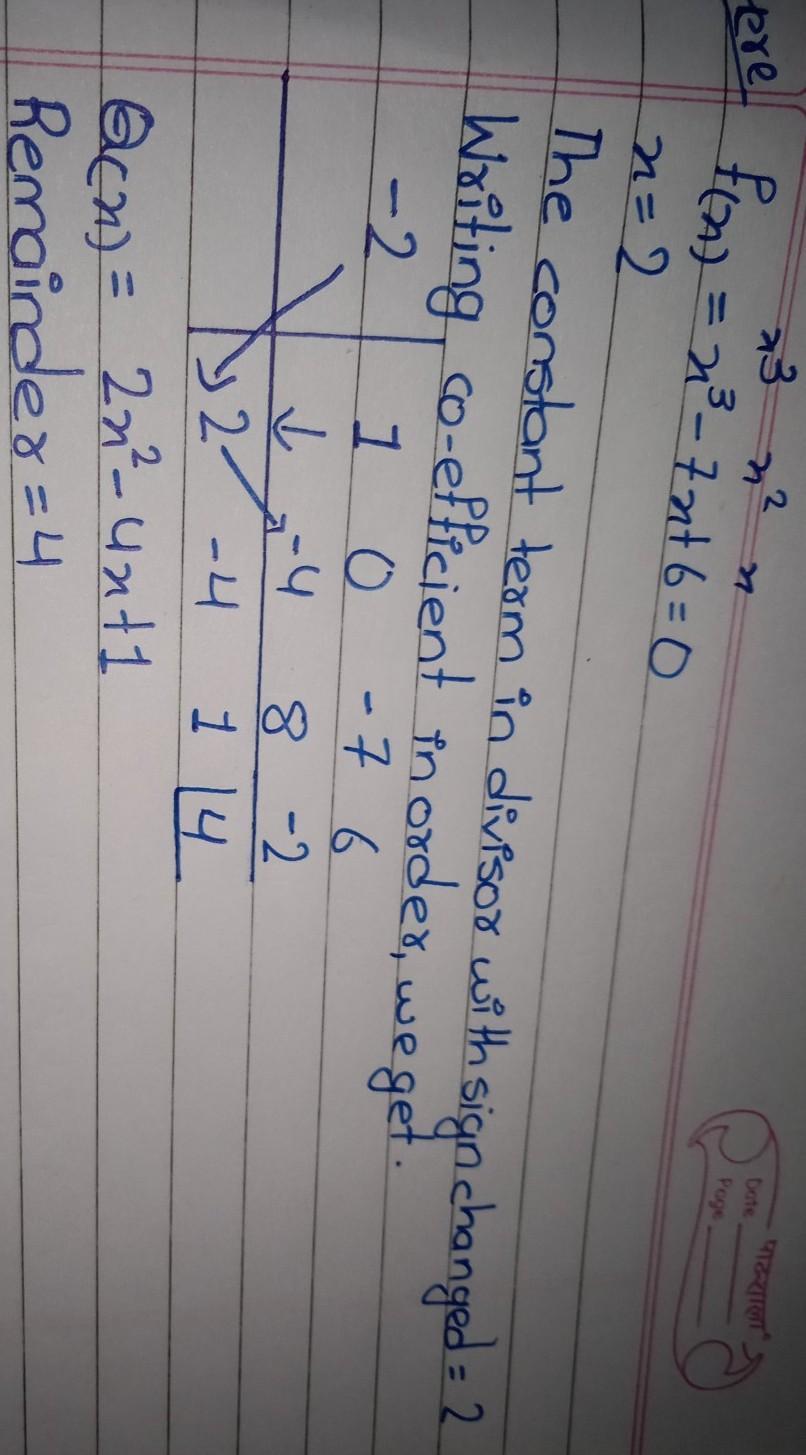 पाठशाला
Date
Page
x³ x² x
ere f(x) = x³ - 7x + 6 = 0
x = 2
The constant term in divisor with sign changed = 2
Writing co-efficient in order, we get.
-2 1 0 -7 6
↓ -4 8 -2
2 -4 1 4
Q(x) = 2x² - 4x + 1
Remainder = 4